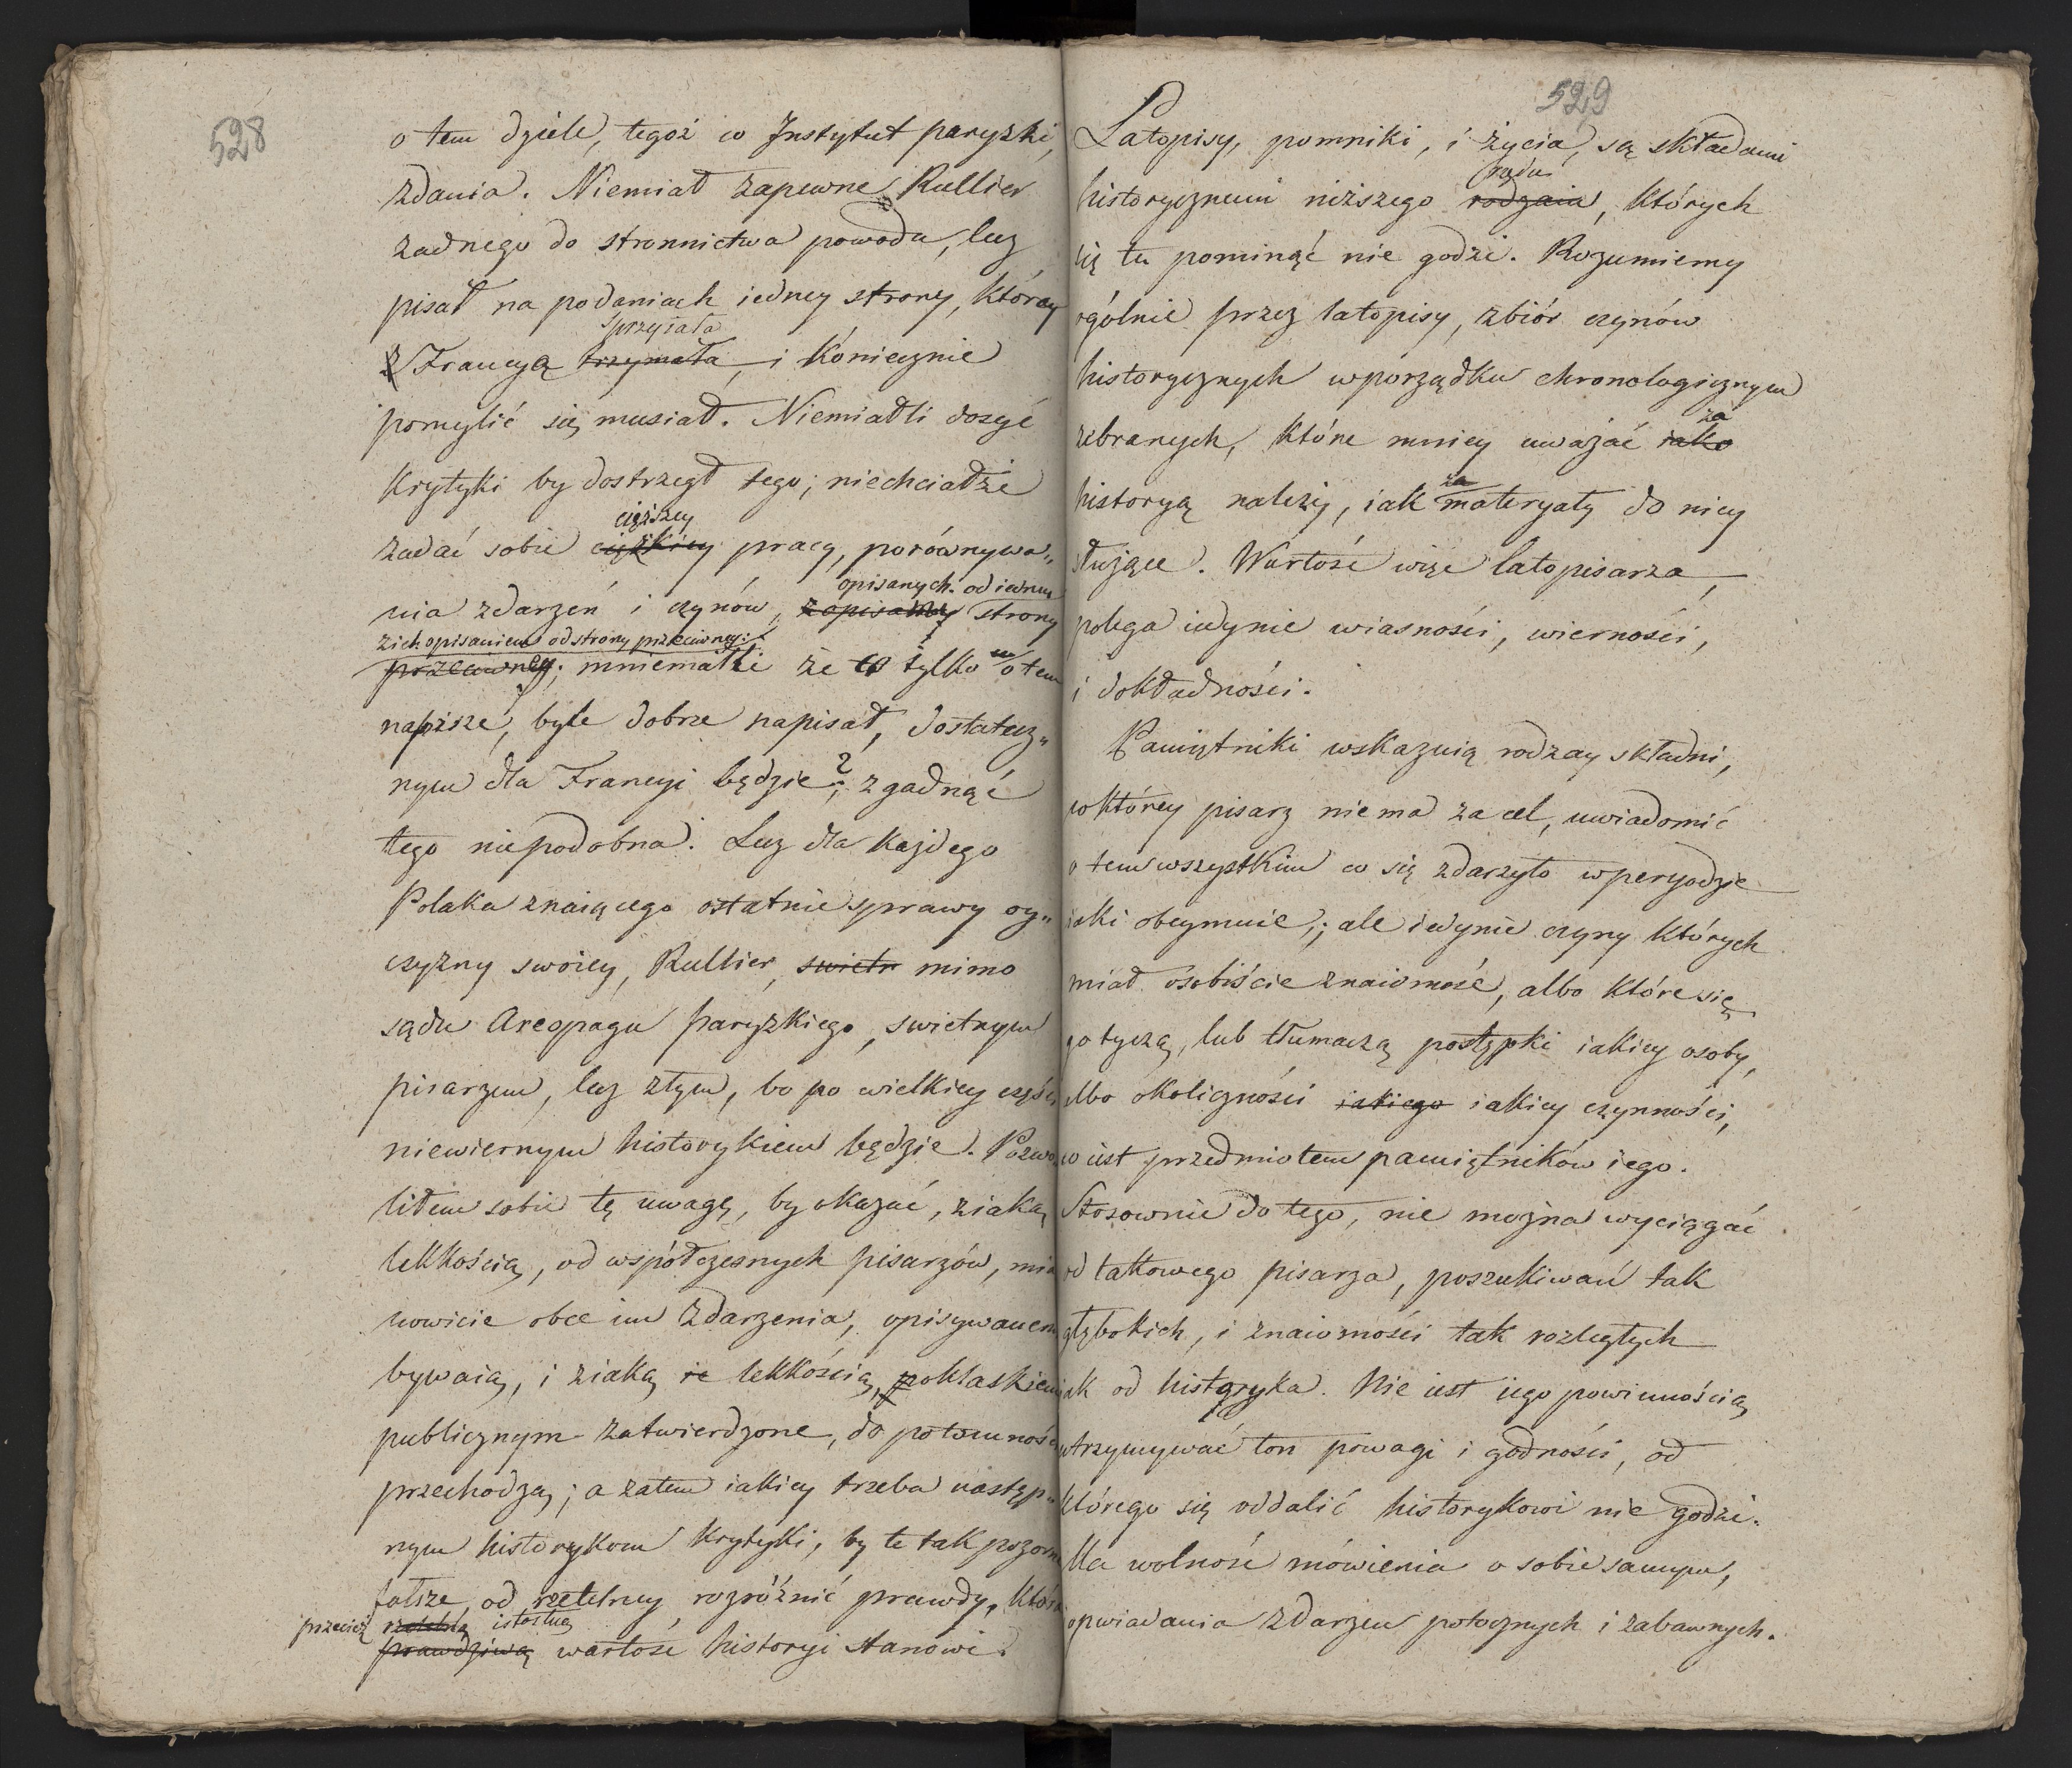 528
o tem dziele, tegoż co Instytut paryzki,
zdania. Niemiał zapewne Rullier
żadnego do stronnictwa powodu, lecz
pisał na podaniach iedney strony, którey
sprzyiała
Francyą trzymała, i koniecznie
pomylić się musiał. Niemiałli dosyć
krytyki by dostrzegł tego; niechciałże
cięższey
zadać sobie ciężkiey pracy, porównywa„
opisanych od iedney
nia zdarzeń i czynów, zapisaney strony
z ich opisaniem od strony przeciwney:
przeciwney; mniemałli że co tylko w o tem
napisze, byle dobrze napisał, dostatecz„
nym dla Francyi będzie?; zgadnąć
tego niepodobna. Lecz dla każdego
Polaka znaiącego ostatnie sprawy oy„
czyzny swoiey, Rullier, swietn mimo
sądu Areopagu paryzkiego, swietnym
pisarzem, lecz złym, bo po wielkiey części
niewiernym historykiem będzie. Pozwo
liłem sobie tę uwagę, by okazać, z iaką
lekkością, od współczesnych pisarzów, mia
nowicie obce im zdarzenia, opisywanemi
bywaią, i z iaką że lekkością, poklaskiem
publicznym zatwierdzone, do potomności
przechodzą; a zatem iakiey trzeba następ„
nym historykom krytyki, by te tak pozorne
fałsze, od rzetelney rozróżnić prawdy, która
przecież rzetelną istotną
prawdziwą wartość historyi stanowi.
529
Latopisy, pomniki, i życia, są składami
rzędu
historycznemi niższego rodzaiu, których
się tu pominąć nie godzi. Rozumiemy
ogólnie przez latopisy, zbiór czynów
historycznych w porządku chronologicznym
za
zebranych, które mniey uważać iako
za
historyą należy, iak materyały do niey
służące. Wartość więc latopisarza,
polega iedynie w iasności, wierności,
i dokładności.
Pamiętniki wskazuią rodzay składni,
w którey pisarz nie ma za cel, uwiadomić
o tem wszystkim co się zdarzyło w peryodzie
iaki obeymuie; ale iedynie czyny których
miał osobiście znaiomość, albo które się
go tyczą, lub tłumaczą postępki iakiey osoby,
albo okoliczności iakiego iakiey czynności,
co iest przedmiotem pamiętników iego.
Stosownie do tego, nie można wyciągać
od takowego pisarza, poszukiwań tak
głębokich, i znaiomości tak rozległych
iak od historyka. Nie iest iego powinnością
utrzymywać ton powagi i godności, od
którego się oddalić historykowi nie godzi.
Ma wolność mówienia o sobie samym,
opwiadania zdarzeń potocznych i zabawnych.